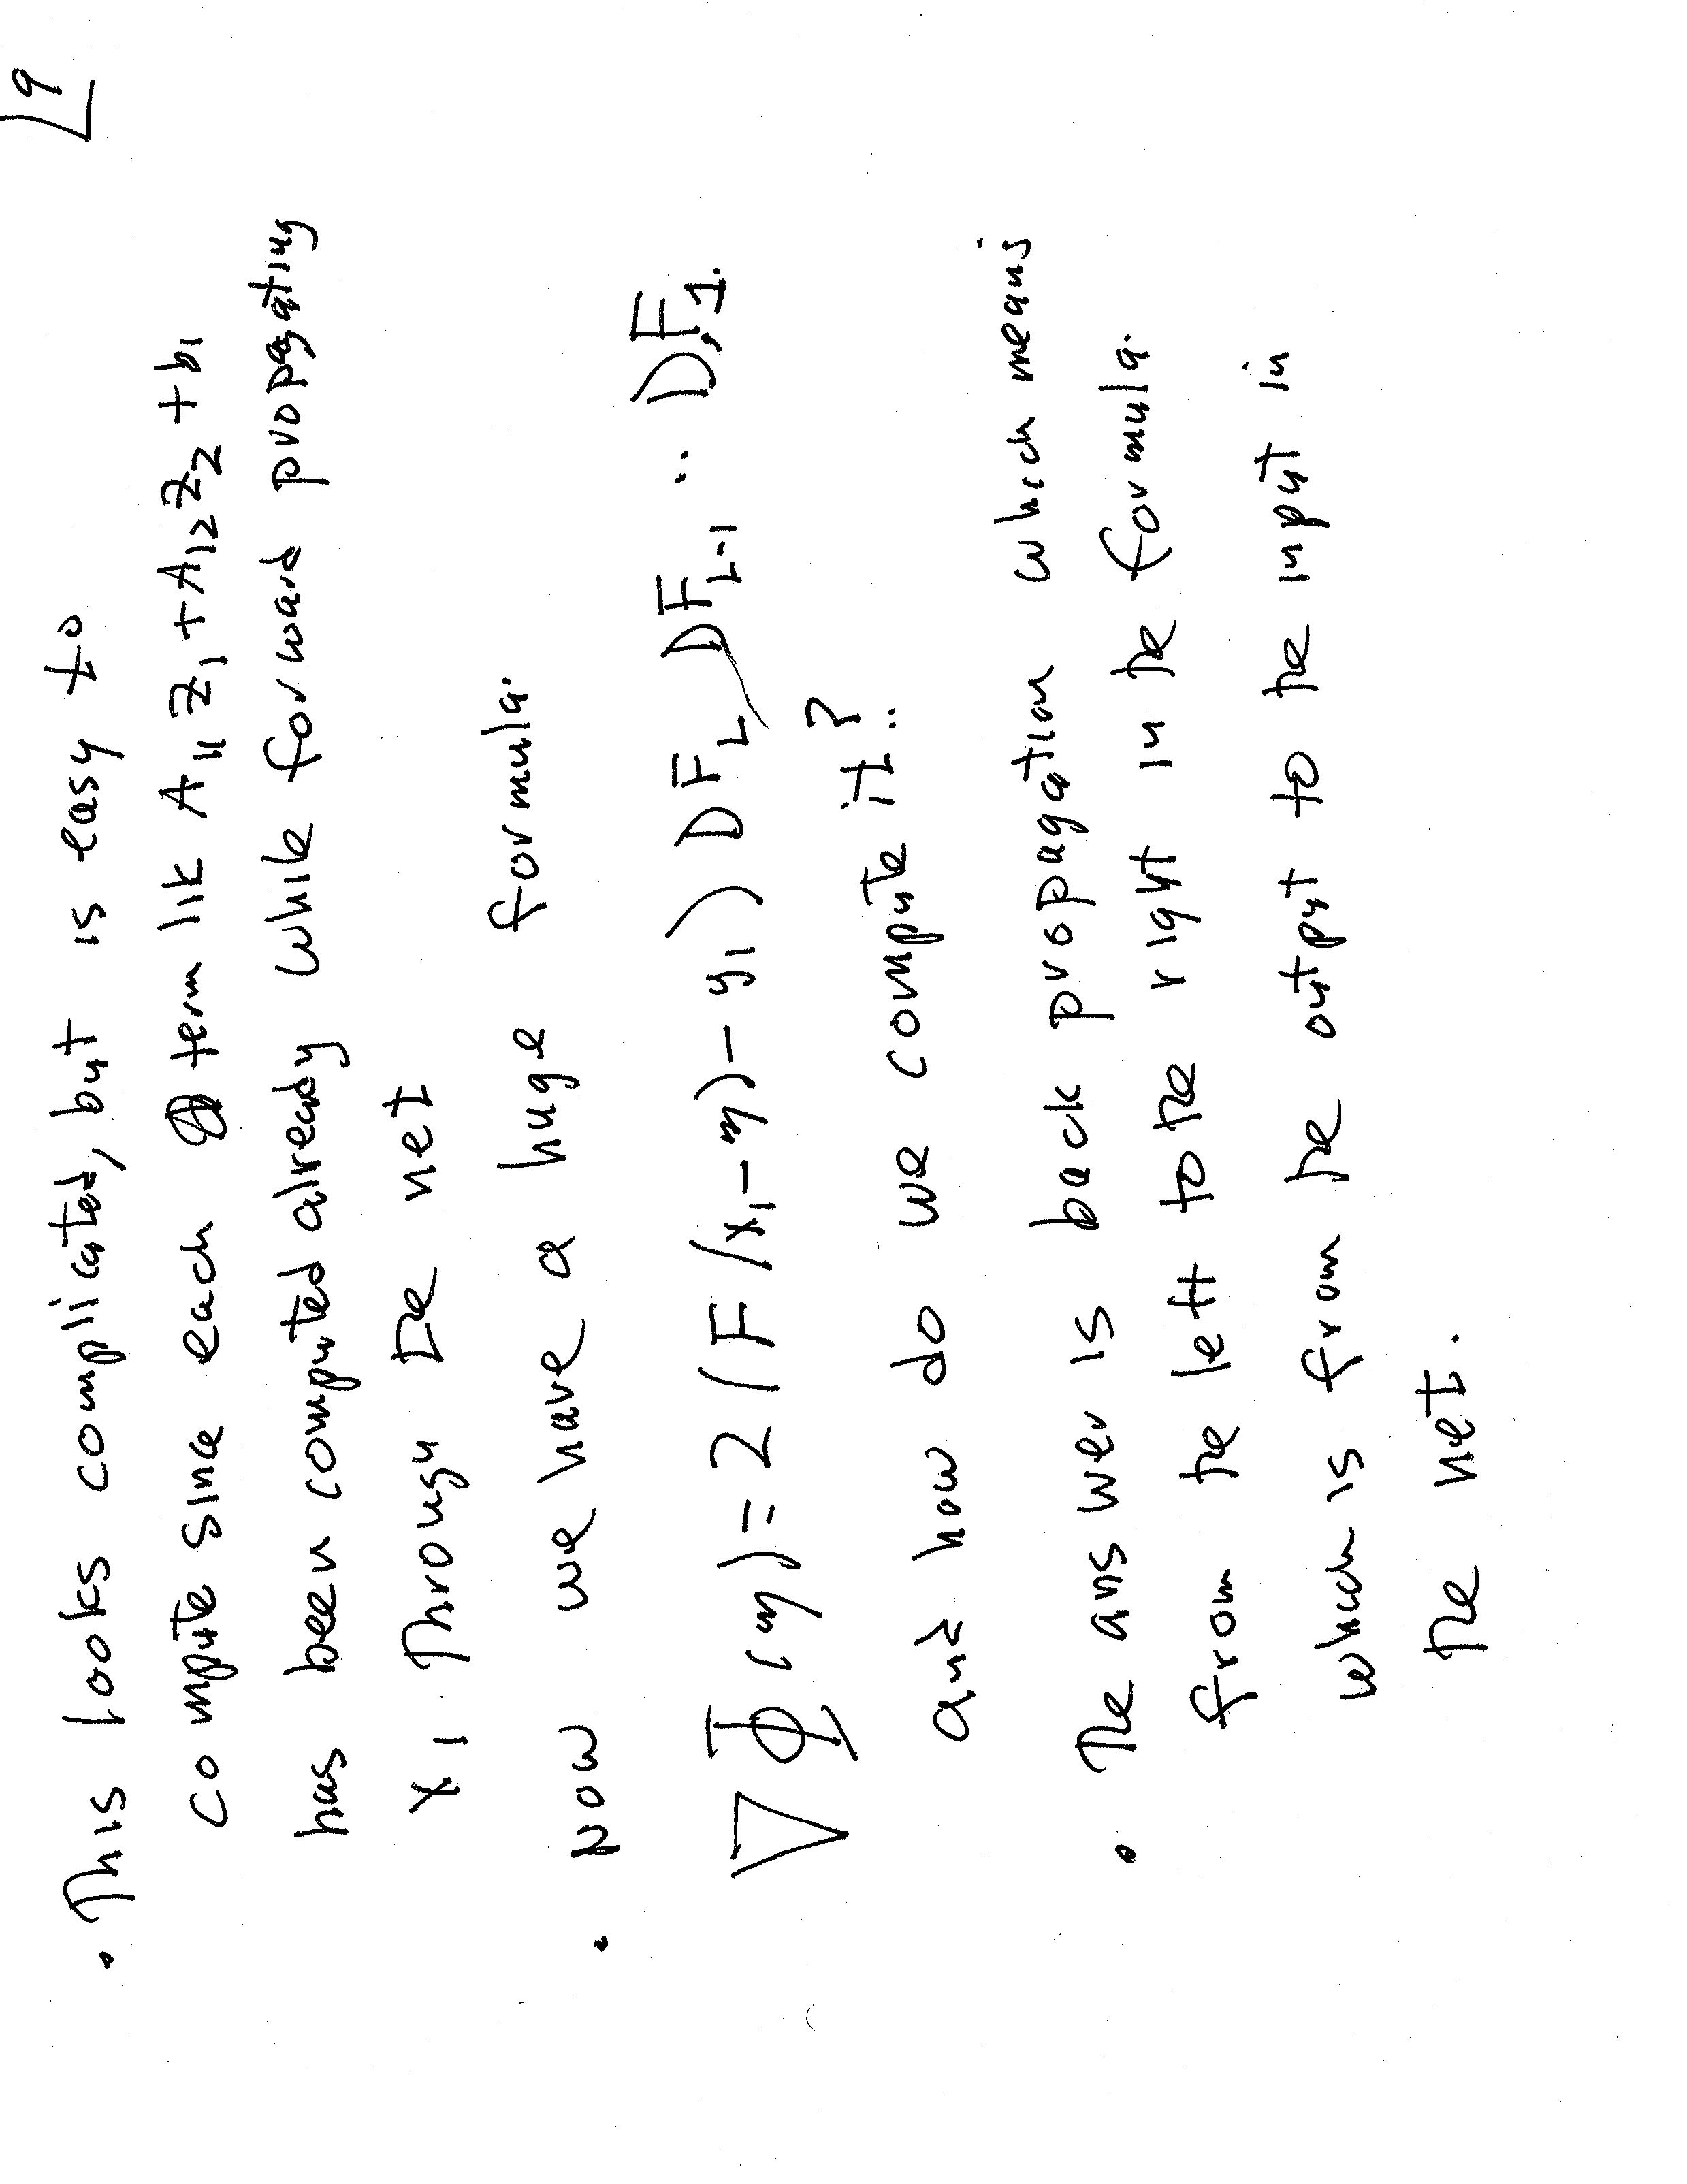 9
• This looks complicated, but is easy to
compute since each term lik A₁₁ z₁ + A₁₂ z₂ + b₁
has been computed already while forward propagating
x₁ Through the net
• Now we have a huge formula.
∇Φ(η) = 2(F(x₁-η)-y₁) DF_L DF_{L-1} ·· DF₁.
and how do we compute it?
• The answer is back propagation which means
from the left to the right in the formula.
which is from the output to the input in
the net.